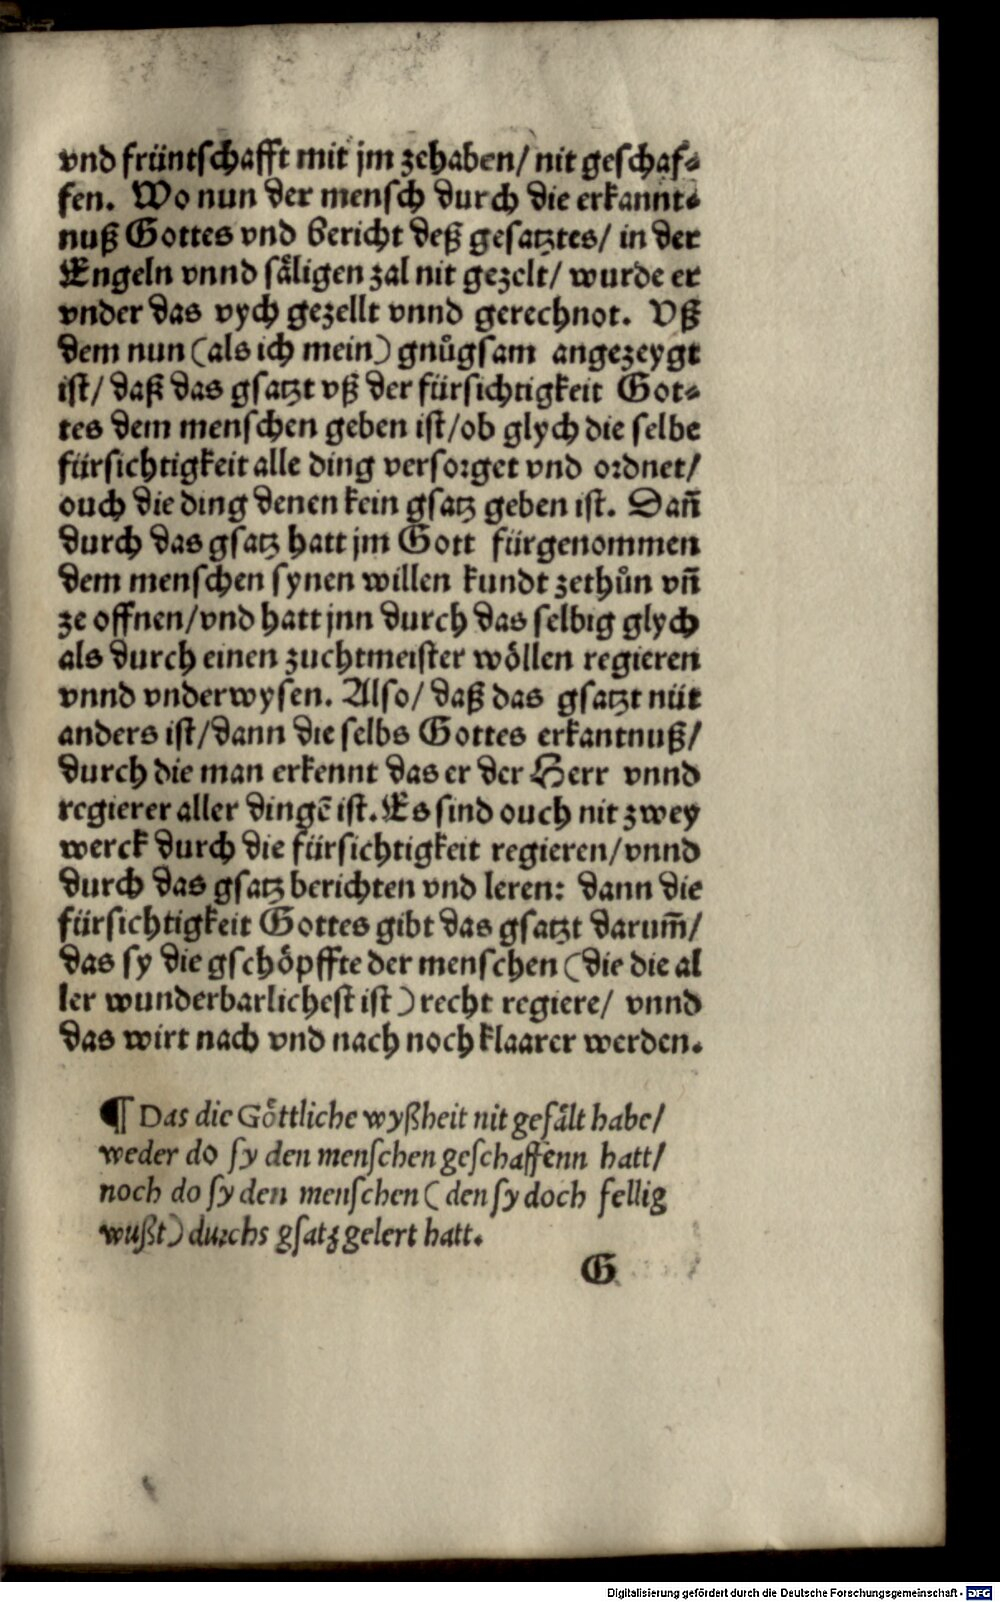 vnd früntschafft mit jm zehaben/ nit geschaf⸗
fen. Wo nun der mensch durch die erkannt⸗
nuß Gottes vnd bericht deß gesatztes/ in der
Engeln vnnd sǎligen zal nit gezelt/ wurde er
vnder das vych gezellt vnnd gerechnot. Vß
dem nun (als ich mein) gnůgsam angezeygt
ist/ daß das gsatzt vß der fürsichtigkeit Got⸗
tes dem menschen geben ist/ob glych die selbe
fürsichtigkeit alle ding versorget vnd ordnet/
ouch die ding denen kein gsatz geben ist. Dañ
durch das gsatz hatt jm Gott fürgenommen
dem menschen synen willen kundt zethůn vñ
ze offnen/vnd hatt jnn durch das selbig glych
als durch einen zuchtmeister wöllen regieren
vnnd vnderwysen. Also/ daß das gsatzt nüt
anders ist/dann die selbs Gottes erkantnuß/
durch die man erkennt das er der Herr vnnd
regierer aller dingē ist. Es sind ouch nit zwey
werck durch die fürsichtigkeit regieren/vnnd
durch das gsatz berichten vnd leren: dann die
fürsichtigkeit Gottes gibt das gsatzt darum̃/
das sy die gschöpffte der menschen (die die al
ler wunderbarlichest ist) recht regiere/ vnnd
das wirt nach vnd nach noch klaarer werden.
¶ Das die Göttliche wyßheit nit gefält habe/
weder do sy den menschen geschaffenn hatt/
noch do sy den menschen (den sy doch fellig
wußt) durchs gsatz gelert hatt.
G
Digitalisierung gefördert durch die Deutsche Forschungsgemeinschaft - DFG